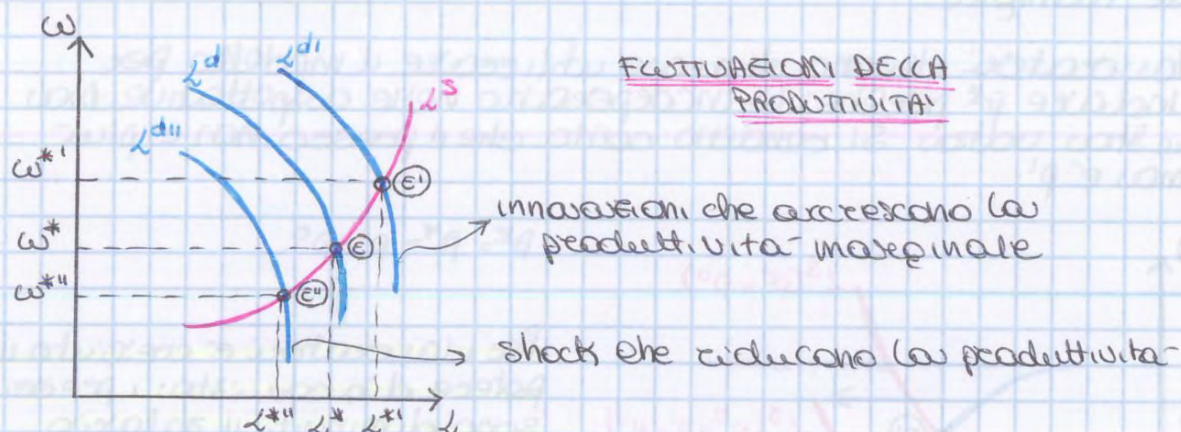 ω
L^d
L^d'
L^s
L^d''
FLUTTUAZIONI DELLA
PRODUTTIVITA'
ω*'
ω*
ω*''
E'
E
E''
innovazioni che accrescono la
produttività marginale
shock che riducono la produttività
L*''
L*
L*'
L